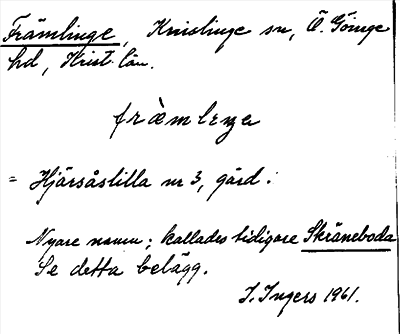 Främlinge, Knislinge sn, Ö. Göinge
hd, Krist. län.
frὰmleŋe
= Hjärsåslilla nr 3, gård.
Nyare namn; kallades tidigare Skräneboda
Se detta belägg.
I. Ingers 1961.